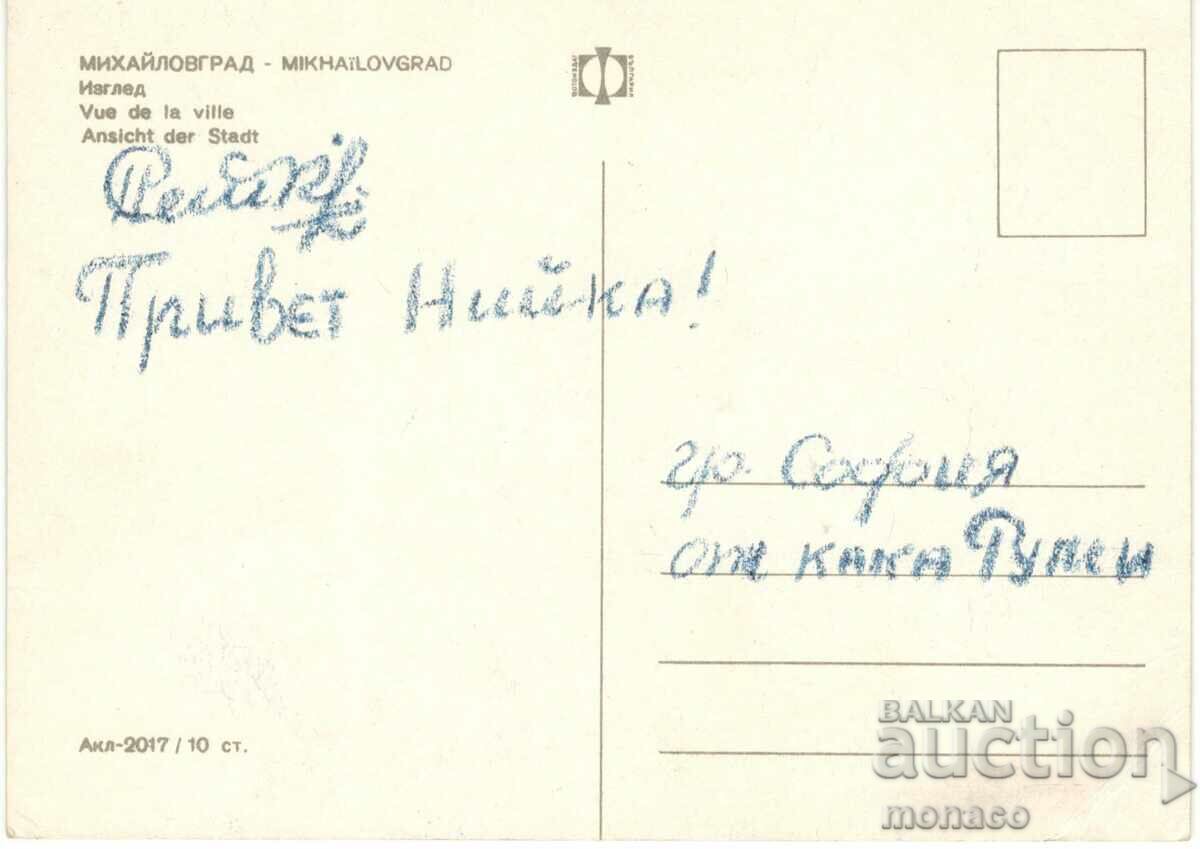 МИХАЙЛОВГРАД - MIKHAÏLOVGRAD
Изглед
Vue de la ville
Ansicht der Stadt
Привет Нийка!
гр. София
от кака
Акл-2017 / 10 ст.
BALKAN
auction
monaco